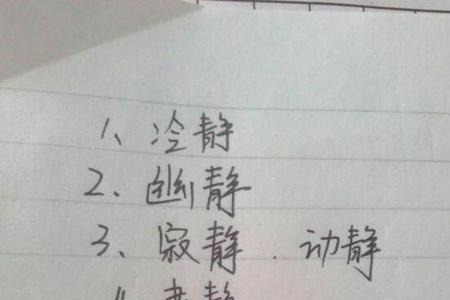 1、冷静
2、幽静
3、寂静．动静